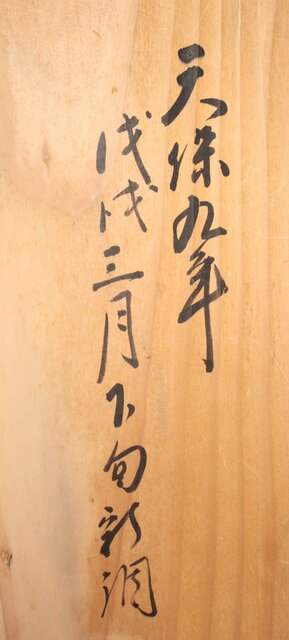 天保九年
戊戌三月下旬新調